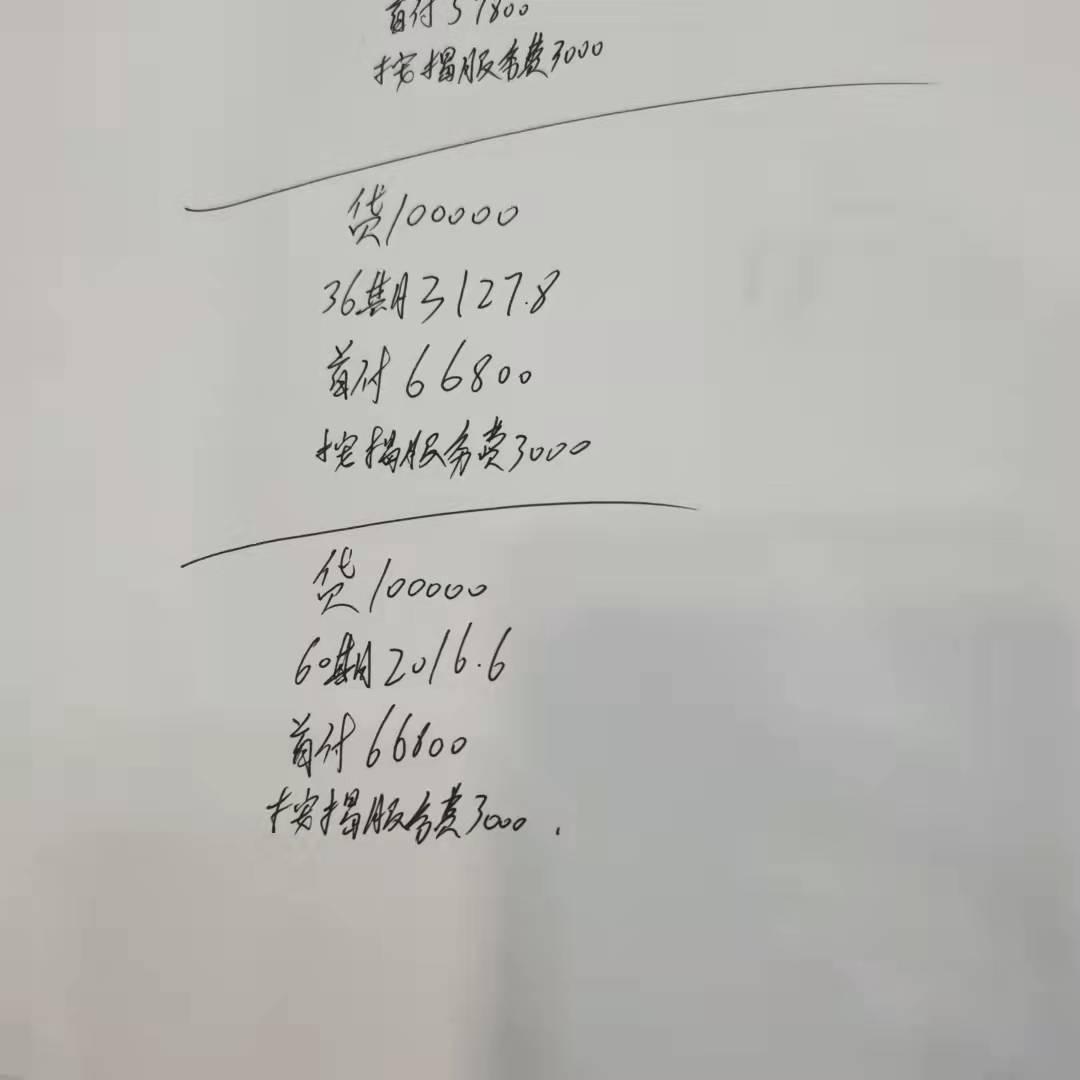 首付57800
按揭服务费3000
贷100000
36期3127.8
首付66800
按揭服务费3000
贷100000
60期2016.6
首付66800
按揭服务费3000.